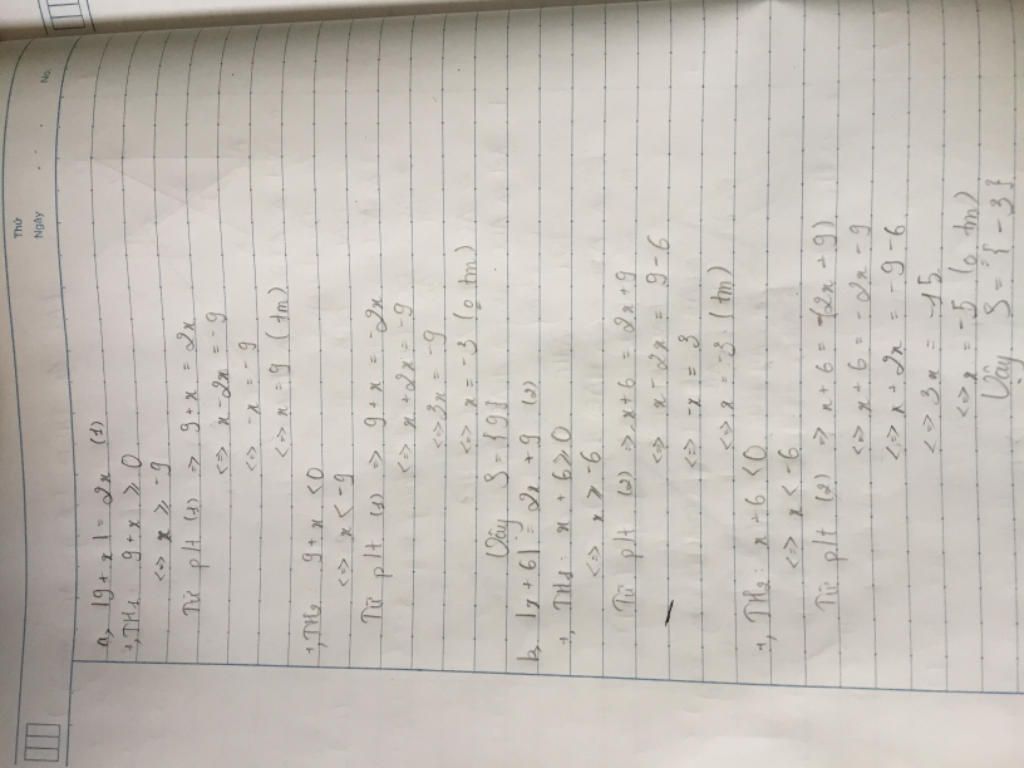 Thứ
Ngày
No.
a, |9 + x| = 2x (1)
+, TH1: 9 + x ⩾ 0
<=> x ⩾ -9
Từ plt (1) => 9 + x = 2x
<=> x - 2x = -9
<=> -x = -9
<=> x = 9 (tm)
+, TH2: 9 + x < 0
<=> x < -9
Từ plt (1) => 9 + x = -2x
<=> x + 2x = -9
<=> 3x = -9
<=> x = -3 (o tm)
Vậy S = {9}
b, |x + 6| = 2x + 9 (2)
+, TH1: x + 6 ⩾ 0
<=> x ⩾ -6
Từ plt (2) => x + 6 = 2x + 9
<=> x - 2x = 9 - 6
<=> -x = 3
<=> x = -3 (tm)
+, TH2: x + 6 < 0
<=> x < -6
Từ plt (2) => x + 6 = -(2x + 9)
<=> x + 6 = -2x - 9
<=> x + 2x = -9 - 6
<=> 3x = -15
<=> x = -5 (o tm)
Vậy S = {-3}